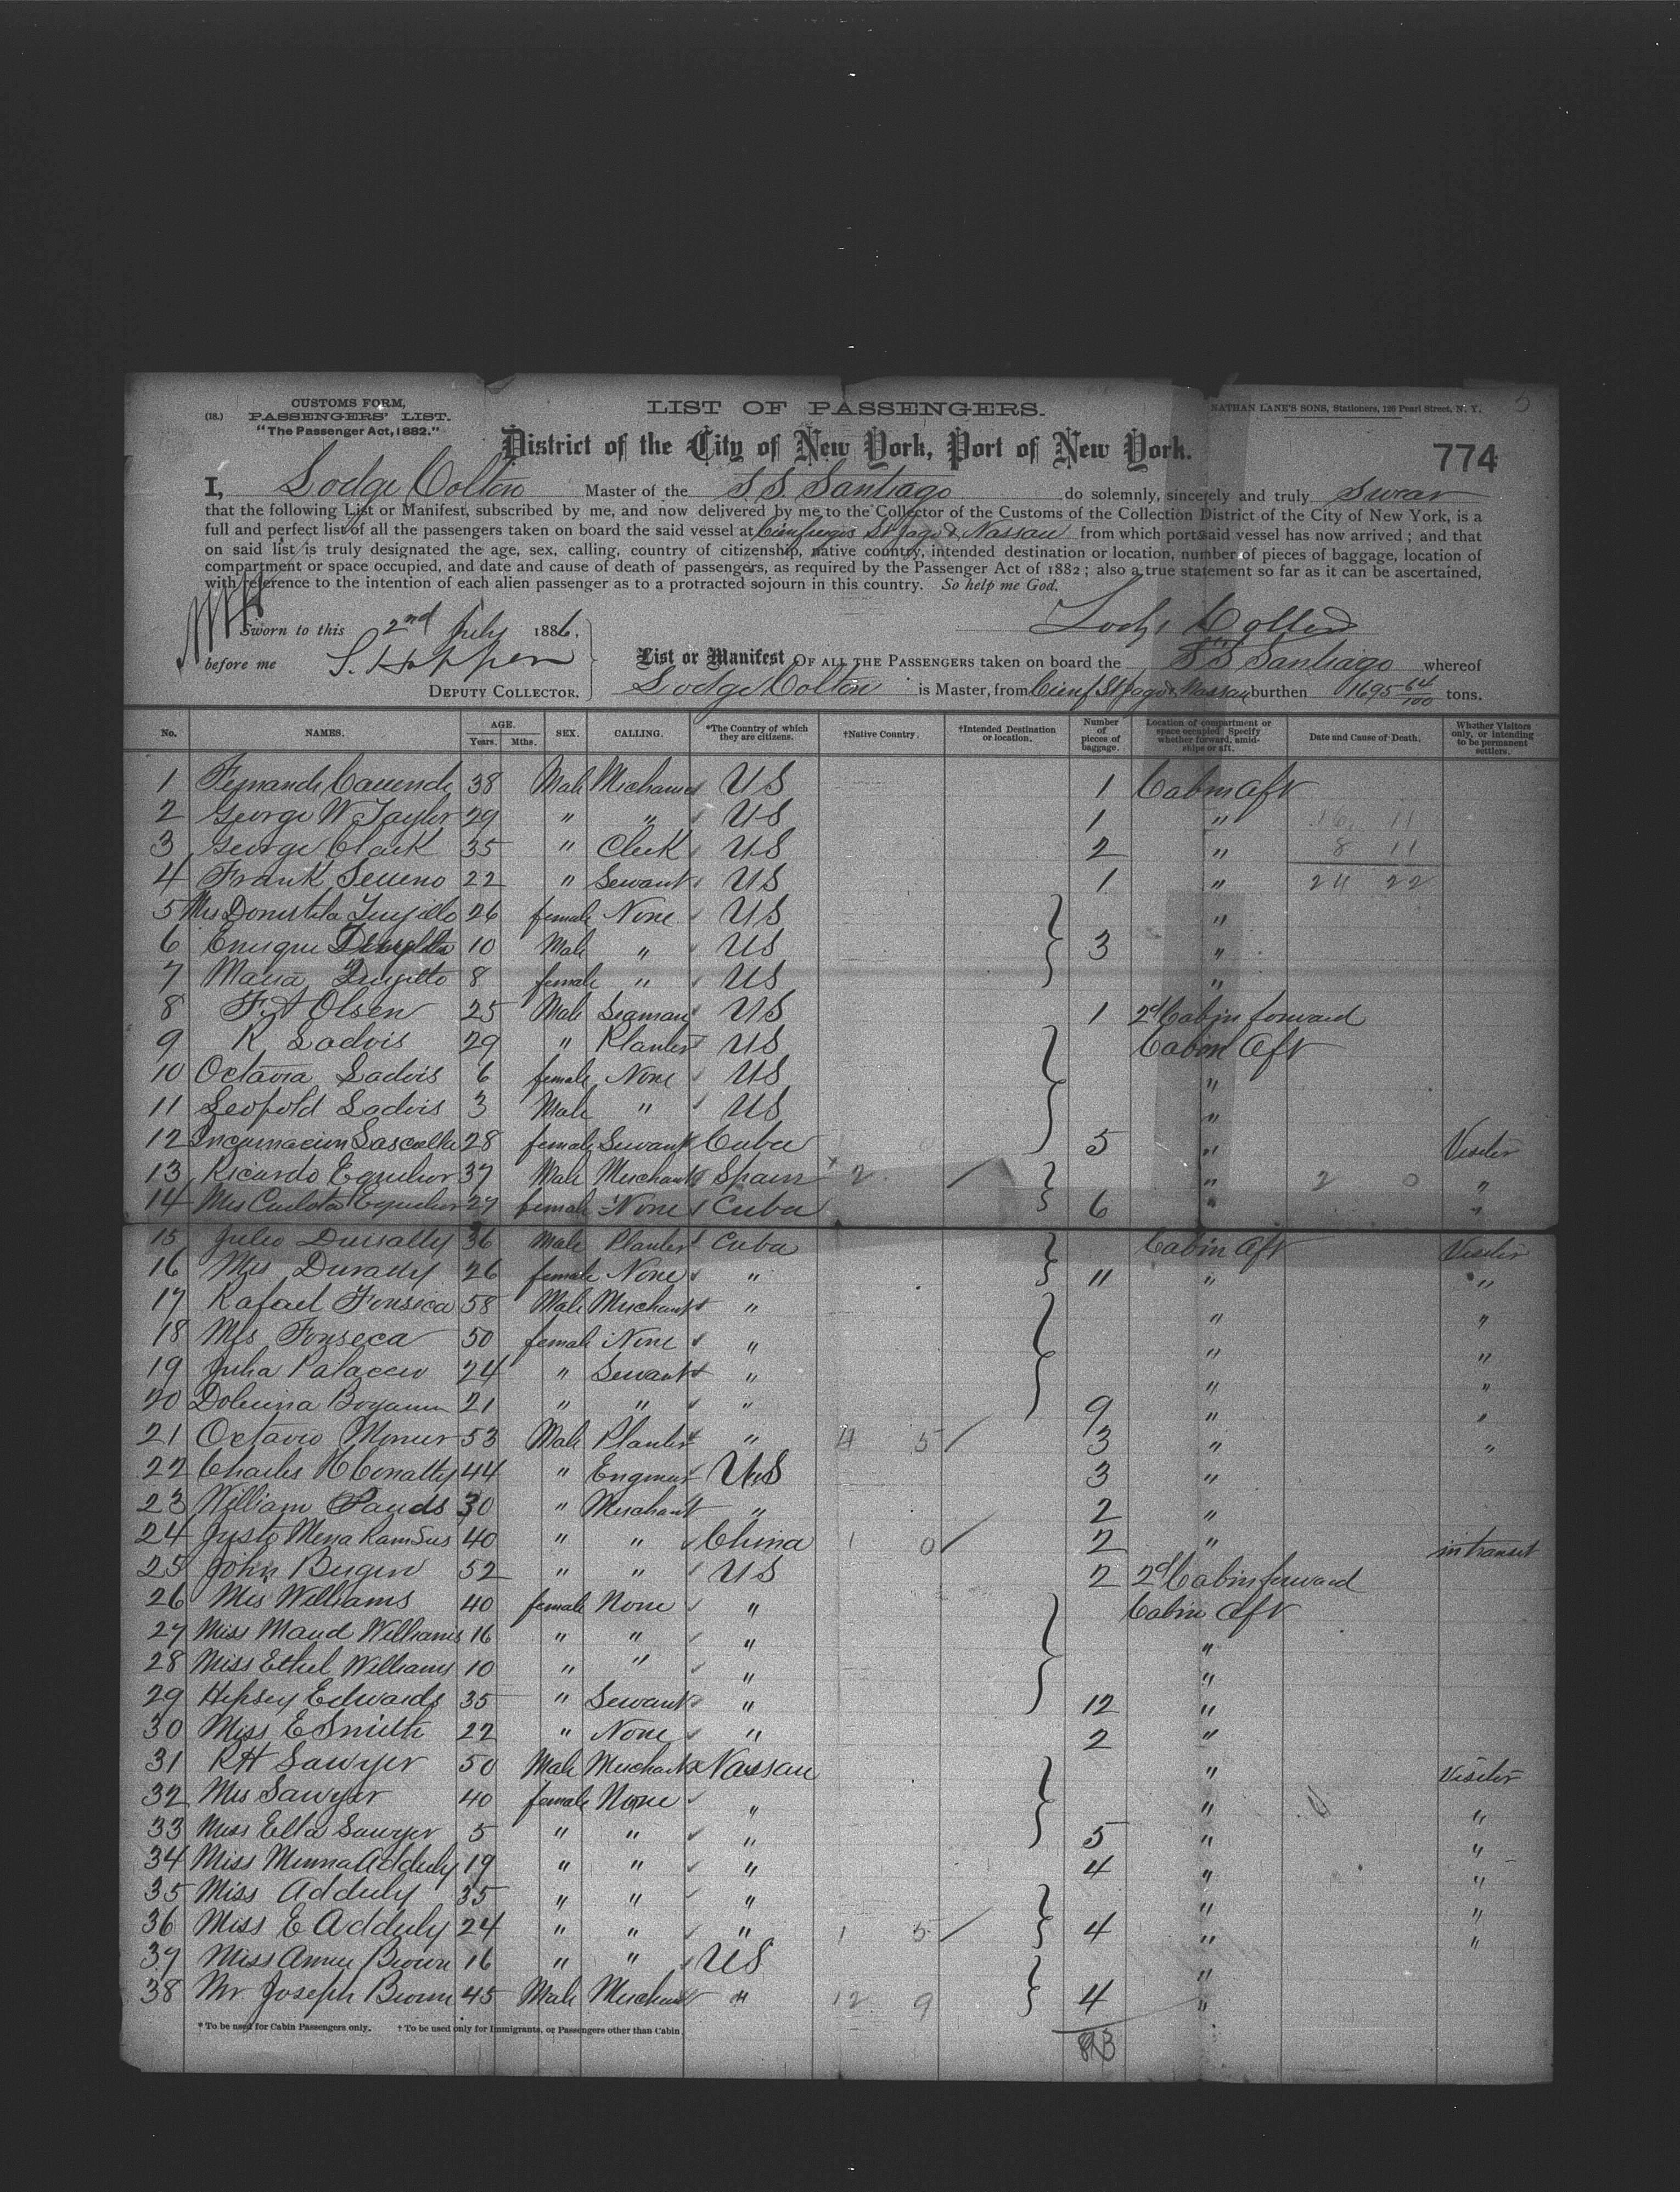 (18.) CUSTOMS FORM, PASSENGERS' LIST. "The Passenger Act, 1882."
LIST OF PASSENGERS.
NATHAN LANE'S SONS, Stationers, 126 Pearl Street, N. Y.
5
District of the City of New York, Port of New York.
774
I, Lodge Colton Master of the S S Santiago do solemnly, sincerely and truly swear
that the following List or Manifest, subscribed by me, and now delivered by me to the Collector of the Customs of the Collection District of the City of New York, is a
full and perfect list of all the passengers taken on board the said vessel at Cienfuegos St Jago & Nassau from which port said vessel has now arrived; and that
on said list is truly designated the age, sex, calling, country of citizenship, native country, intended destination or location, number of pieces of baggage, location of
compartment or space occupied, and date and cause of death of passengers, as required by the Passenger Act of 1882; also a true statement so far as it can be ascertained,
with reference to the intention of each alien passenger as to a protracted sojourn in this country. So help me God.
Sworn to this 2nd July 1886.
Lodge Colton
before me S. Hoppen
DEPUTY COLLECTOR.
List or Manifest OF ALL THE PASSENGERS taken on board the S S Santiago whereof
Lodge Colton is Master, from Cienf St Jago & Nassau burthen 1695 64/100 tons.
No. NAMES. AGE. Years. Mths. SEX. CALLING. *The Country of which they are citizens. †Native Country. †Intended Destination or location. Number of pieces of baggage. Location of compartment or space occupied Specify whether forward, amidships or aft. Date and Cause of Death. Whether Visitors only, or intending to be permanent settlers.
1 38 Male Mechanic US 1 Cabin Aft
2 George W Taylor 29 " " US 1 " 16 11
3 George Clark 35 " Clerk US 2 " 8 11
4 Frank 22 " Servant US 1 " 24 22
5 Mrs Trujillo 26 female None US "
6 Enrique 10 Male " US 3 "
7 Maria Trujillo 8 female " US "
8 F A Olsen 25 Male Seaman US 1 2d Cabin forward
9 R Ladvis 29 " Planter US Cabin Aft
10 Octavia Ladvis 6 female None US "
11 Leopold Ladvis 3 Male " US "
12 Incarnacion 28 female Servant Cuba 5 " Visitor
13 Ricardo Eguilior 37 Male Merchant Spain 2 " 2 0 "
14 Mrs Carlota Eguilior 27 female None Cuba 6 " "
15 Julio 36 Male Planter Cuba Cabin Aft Visitor
16 Mrs 26 female None " 11 " "
17 Rafael Fonseca 58 Male Merchant " " "
18 Mrs Fonseca 50 female None " " "
19 Julia Palacew 24 " Servant " " "
20 21 " " " 9 " "
21 Octavio 53 Male Planter " 4 5 3 " "
22 Charles H Conatty 44 " Engineer US 3 "
23 William 30 " Merchant " 2 "
24 Justo Mena 40 " " China 1 0 2 " in transit
25 John 52 " " US 2 2d Cabin forward
26 Mrs Williams 40 female None " Cabin Aft
27 Miss Maud Williams 16 " " " "
28 Miss Ethel Williams 10 " " " "
29 Hepsey Edwards 35 " Servant " 12 "
30 Miss E Smith 22 " None " 2 "
31 R H Sawyer 50 Male Merchant Nassau " Visitor
32 Mrs Sawyer 40 female None " " "
33 Miss Ella Sawyer 5 " " " 5 " "
34 Miss Minna Adduly 19 " " " 4 " "
35 Miss Adduly 35 " " " " "
36 Miss E Adduly 24 " " " 1 5 4 " "
37 Miss Annie Brown 16 " " US "
38 Mr Joseph Brown 45 Male Merchant " 12 9 4 "
* To be used for Cabin Passengers only. † To be used only for Immigrants, or Passengers other than Cabin